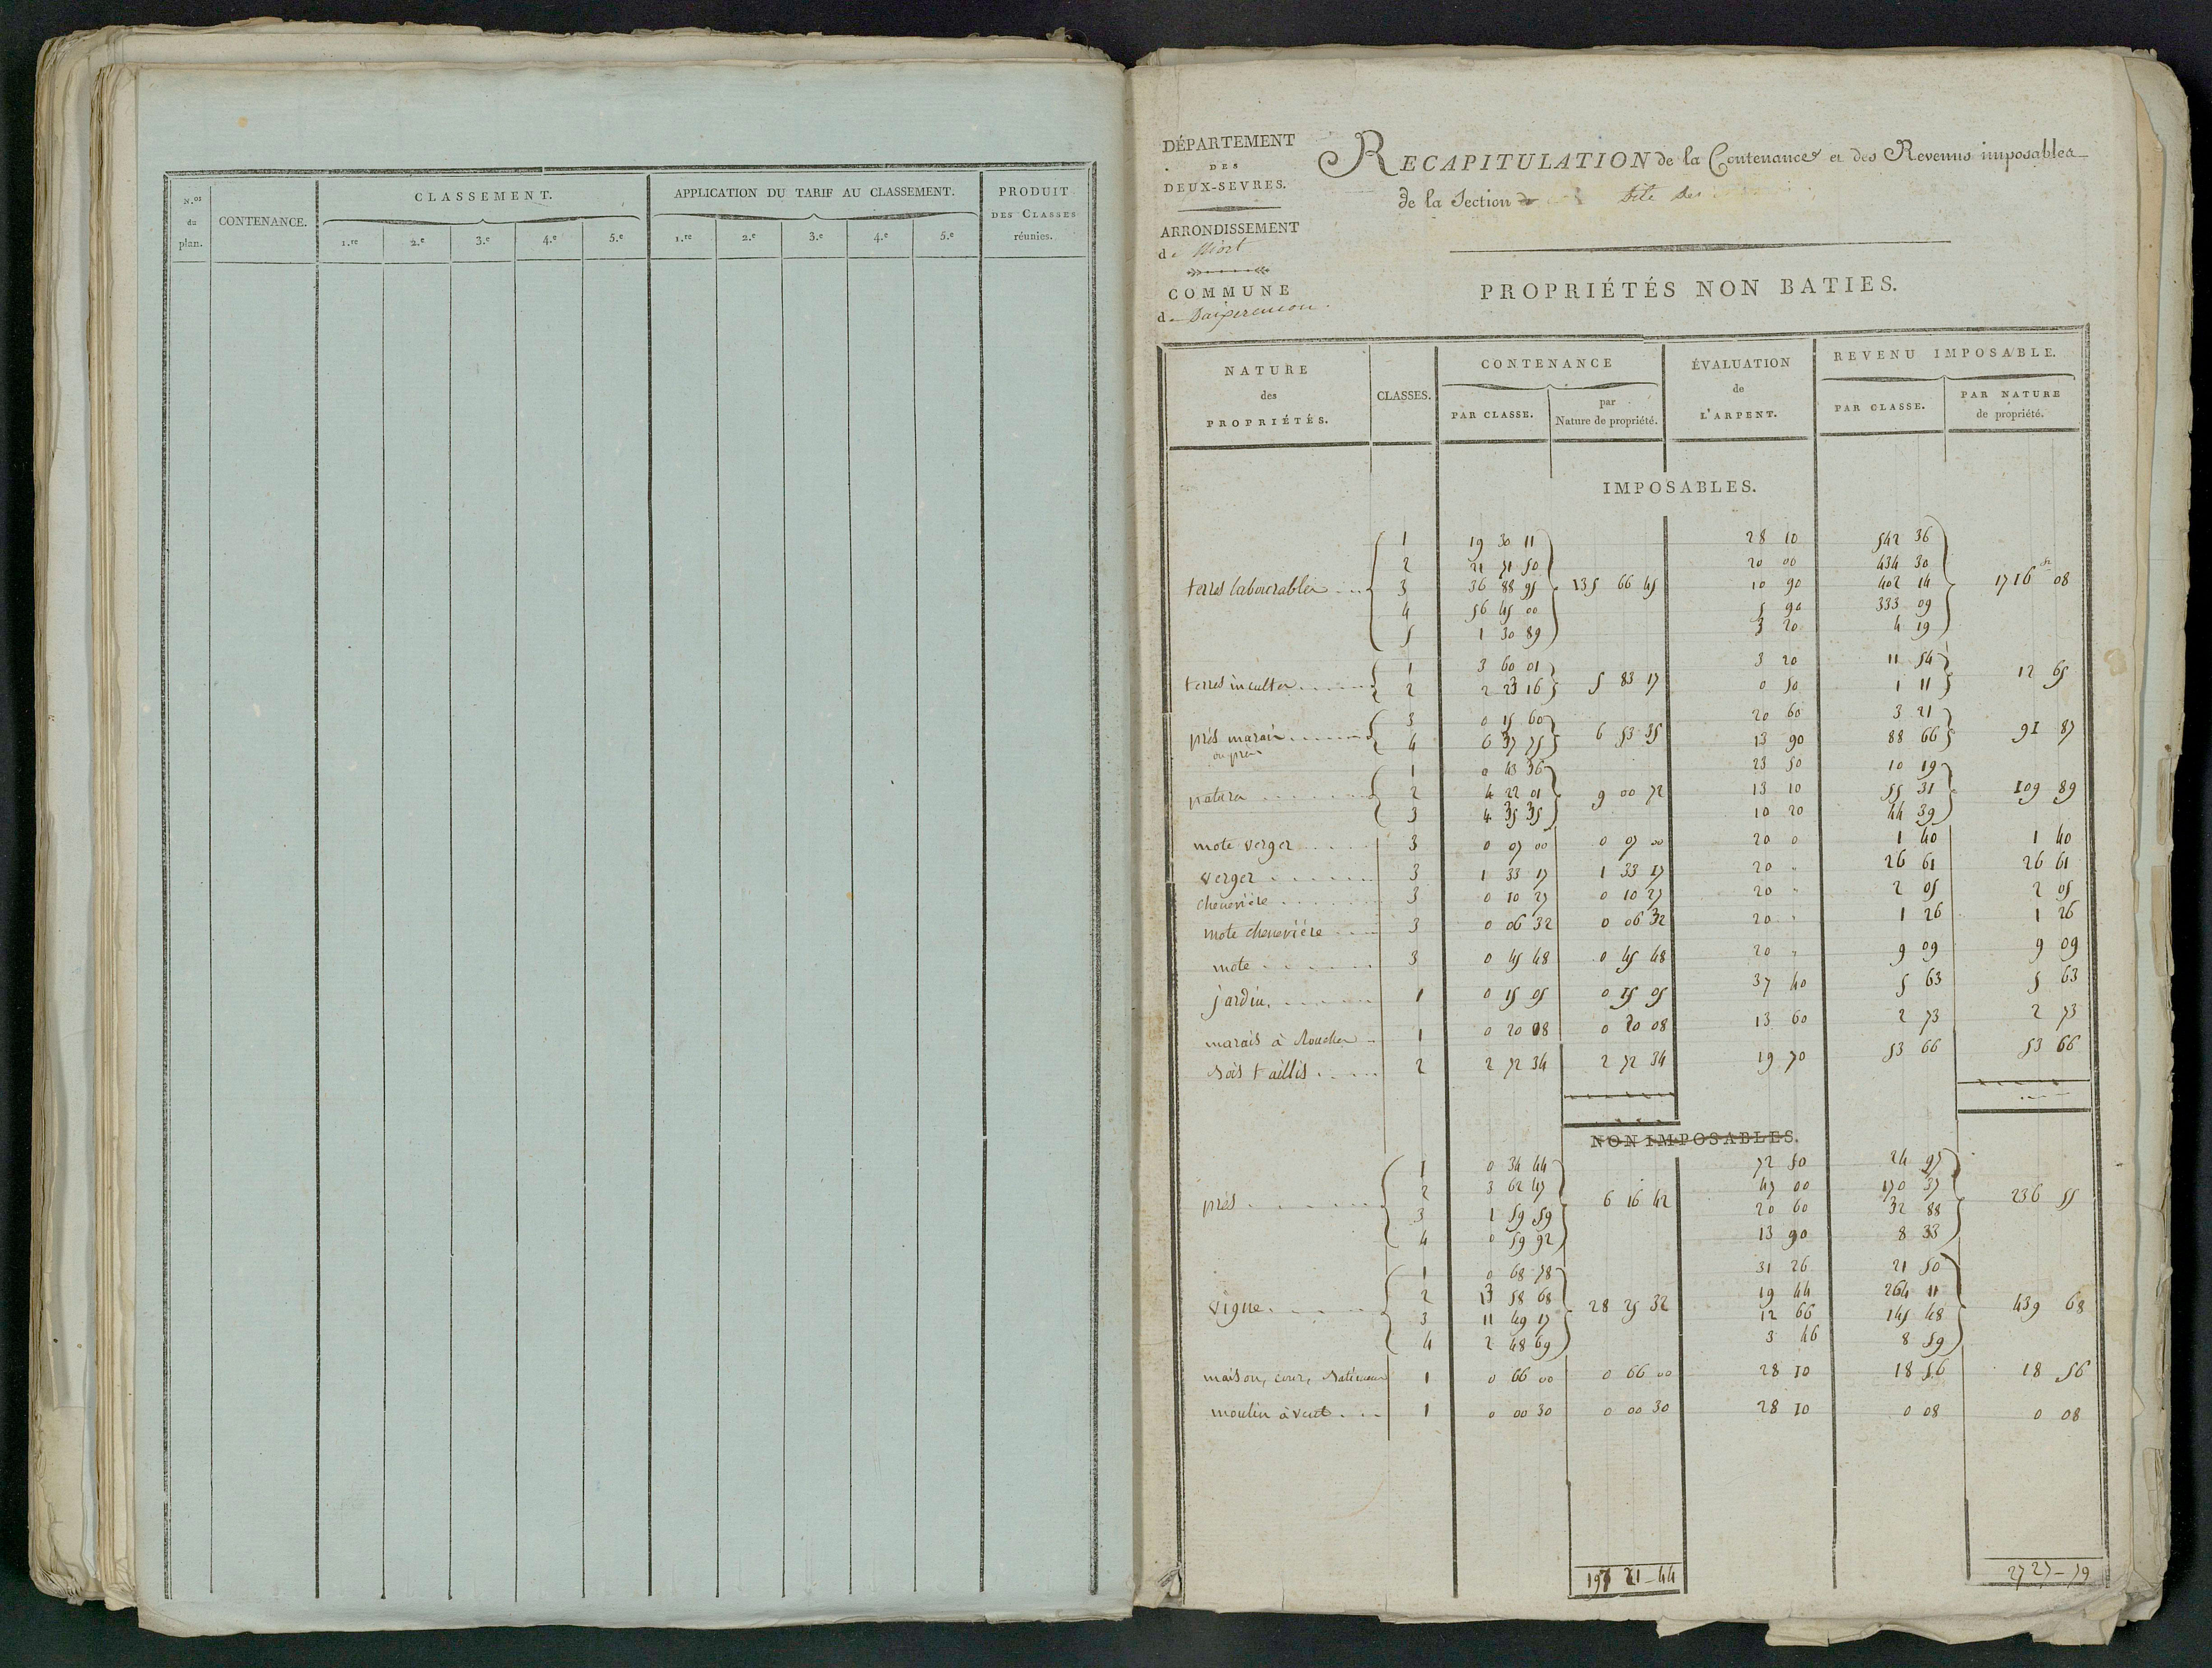 N.os du plan. CONTENANCE. CLASSEMENT. APPLICATION DU TARIF AU CLASSEMENT. PRODUIT DES CLASSES réunies.
1.re 2.e 3.e 4.e 5.e 1.re 2.e 3.e 4.e 5.e
DÉPARTEMENT
DES
DEUX-SEVRES.
ARRONDISSEMENT
de Niort
COMMUNE
de
RECAPITULATION de la Contenance et des Revenus imposables
de la Section de dite des
PROPRIÉTÉS NON BATIES.
NATURE des PROPRIÉTÉS. CLASSES. CONTENANCE ÉVALUATION de L'ARPENT. REVENU IMPOSABLE.
PAR CLASSE. par Nature de propriété. PAR CLASSE. PAR NATURE de propriété.
IMPOSABLES.
1 19 30 11 28 10 542 36
2 21 71 50 20 00 434 30
terres labourables 3 36 88 95 135 66 45 10 90 402 14 1716 08
4 56 45 00 5 90 333 09
5 1 30 89 3 20 4 19
1 3 60 01 3 20 11 54
terres incultes 2 2 23 16 5 83 17 0 50 1 11 12 65
3 0 15 60 20 60 3 21
prés marais 4 6 37 75 6 53 35 13 90 88 66 91 87
ou prés
1 0 43 36 23 50 10 19
patures 2 4 22 01 9 00 72 13 10 55 31 109 89
3 4 35 35 10 20 44 39
mote verger 3 0 07 00 0 07 00 20 0 1 40 1 40
verger 3 1 33 17 1 33 17 20 " 26 61 26 61
cheneviére 3 0 10 27 0 10 27 20 " 2 05 2 05
mote cheneviére 3 0 06 32 0 06 32 20 " 1 26 1 26
mote 3 0 45 48 0 45 48 20 " 9 09 9 09
jardin 1 0 15 05 0 15 05 37 40 5 63 5 63
marais à Rouches 1 0 20 08 0 20 08 13 60 2 73 2 73
bois taillis 2 2 72 34 2 72 34 19 70 53 66 53 66
NON IMPOSABLES.
1 0 34 44 72 50 24 97
2 3 62 47 47 00 170 37
prés 3 1 59 59 6 16 42 20 60 32 88 236 55
4 0 59 92 13 90 8 33
1 0 68 78 31 26 21 50
2 13 58 68 19 44 264 11
vigne 3 11 49 17 28 25 32 12 66 145 48 439 68
4 2 48 69 3 46 8 59
maison, cour, batiments 1 0 66 00 0 66 00 28 10 18 56 18 56
moulin à vent 1 0 00 30 0 00 30 28 10 0 08 0 08
197 21 - 44 2727 - 79